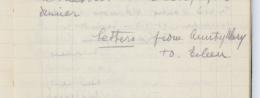 dinner
Letters from Aunty Mary
to Eileen